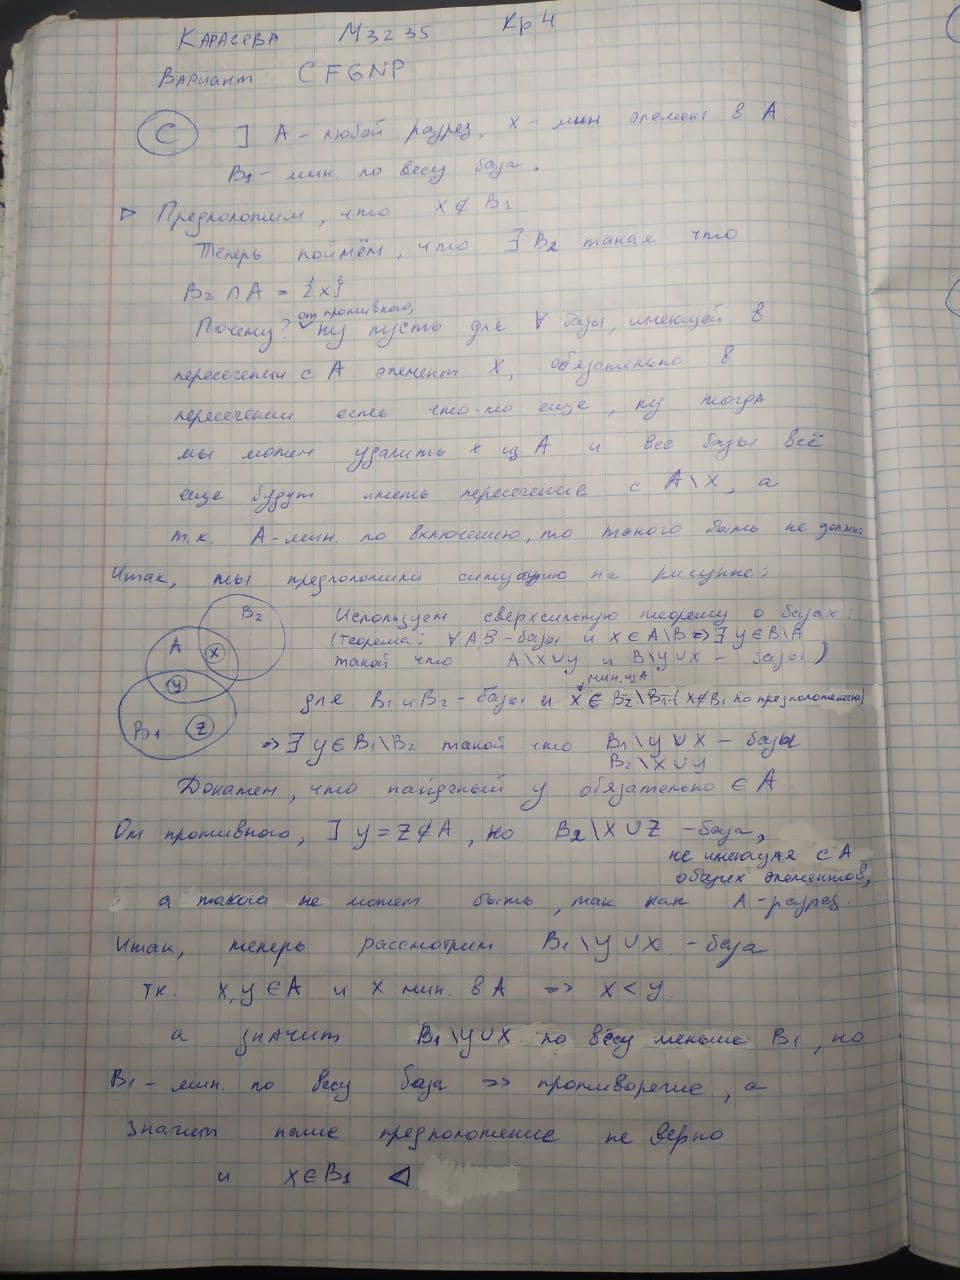 Карасева М3235 Кр 4
Вариант CFGNP
C ] A – любой разрез, x – мин элемент в A.
B₁ – мин. по весу база.
▷ Предположим, что x ∉ B₁
Теперь поймём, что ∃ B₂ такая что
B₂ ∩ A = {x}
от противного,
Почему? ну пусть для ∀ базы, имеющей в
пересечении с A элемент x, обязательно в
пересечении есть что-то еще, ну тогда
мы можем удалить x из A и все базы всё
еще будут иметь пересечение с A\x, а
т.к. A – мин. по включению, то такого быть не должно
Итак, мы предположили ситуацию на рисунке:
B₂
A x
y
B₁ z
Используем сверхсильную теорему о базах:
(теорема: ∀ A,B – базы и x ∈ A\B => ∃ y ∈ B\A
такой что A\x∪y и B\y∪x – базы)
мин. из A
для B₁ и B₂ – базы и x ∈ B₂\B₁ (x∉B₁ по предположению)
=> ∃ y ∈ B₁\B₂ такой что B₁\y∪x – базы
B₂\x∪y
Докажем, что найденный y обязательно ∈ A
От противного, ] y = z ∉ A, но B₂\x∪z – база,
не имеющая с A
общих элементов,
а такого не может быть, так как A – разрез.
Итак, теперь рассмотрим B₁\y∪x – база
тк. x,y ∈ A и x мин. в A => x < y.
а значит B₁\y∪x по весу меньше B₁, но
B₁ – мин. по весу база => противоречие, а
значит наше предположение не верно
и x ∈ B₁ ◁